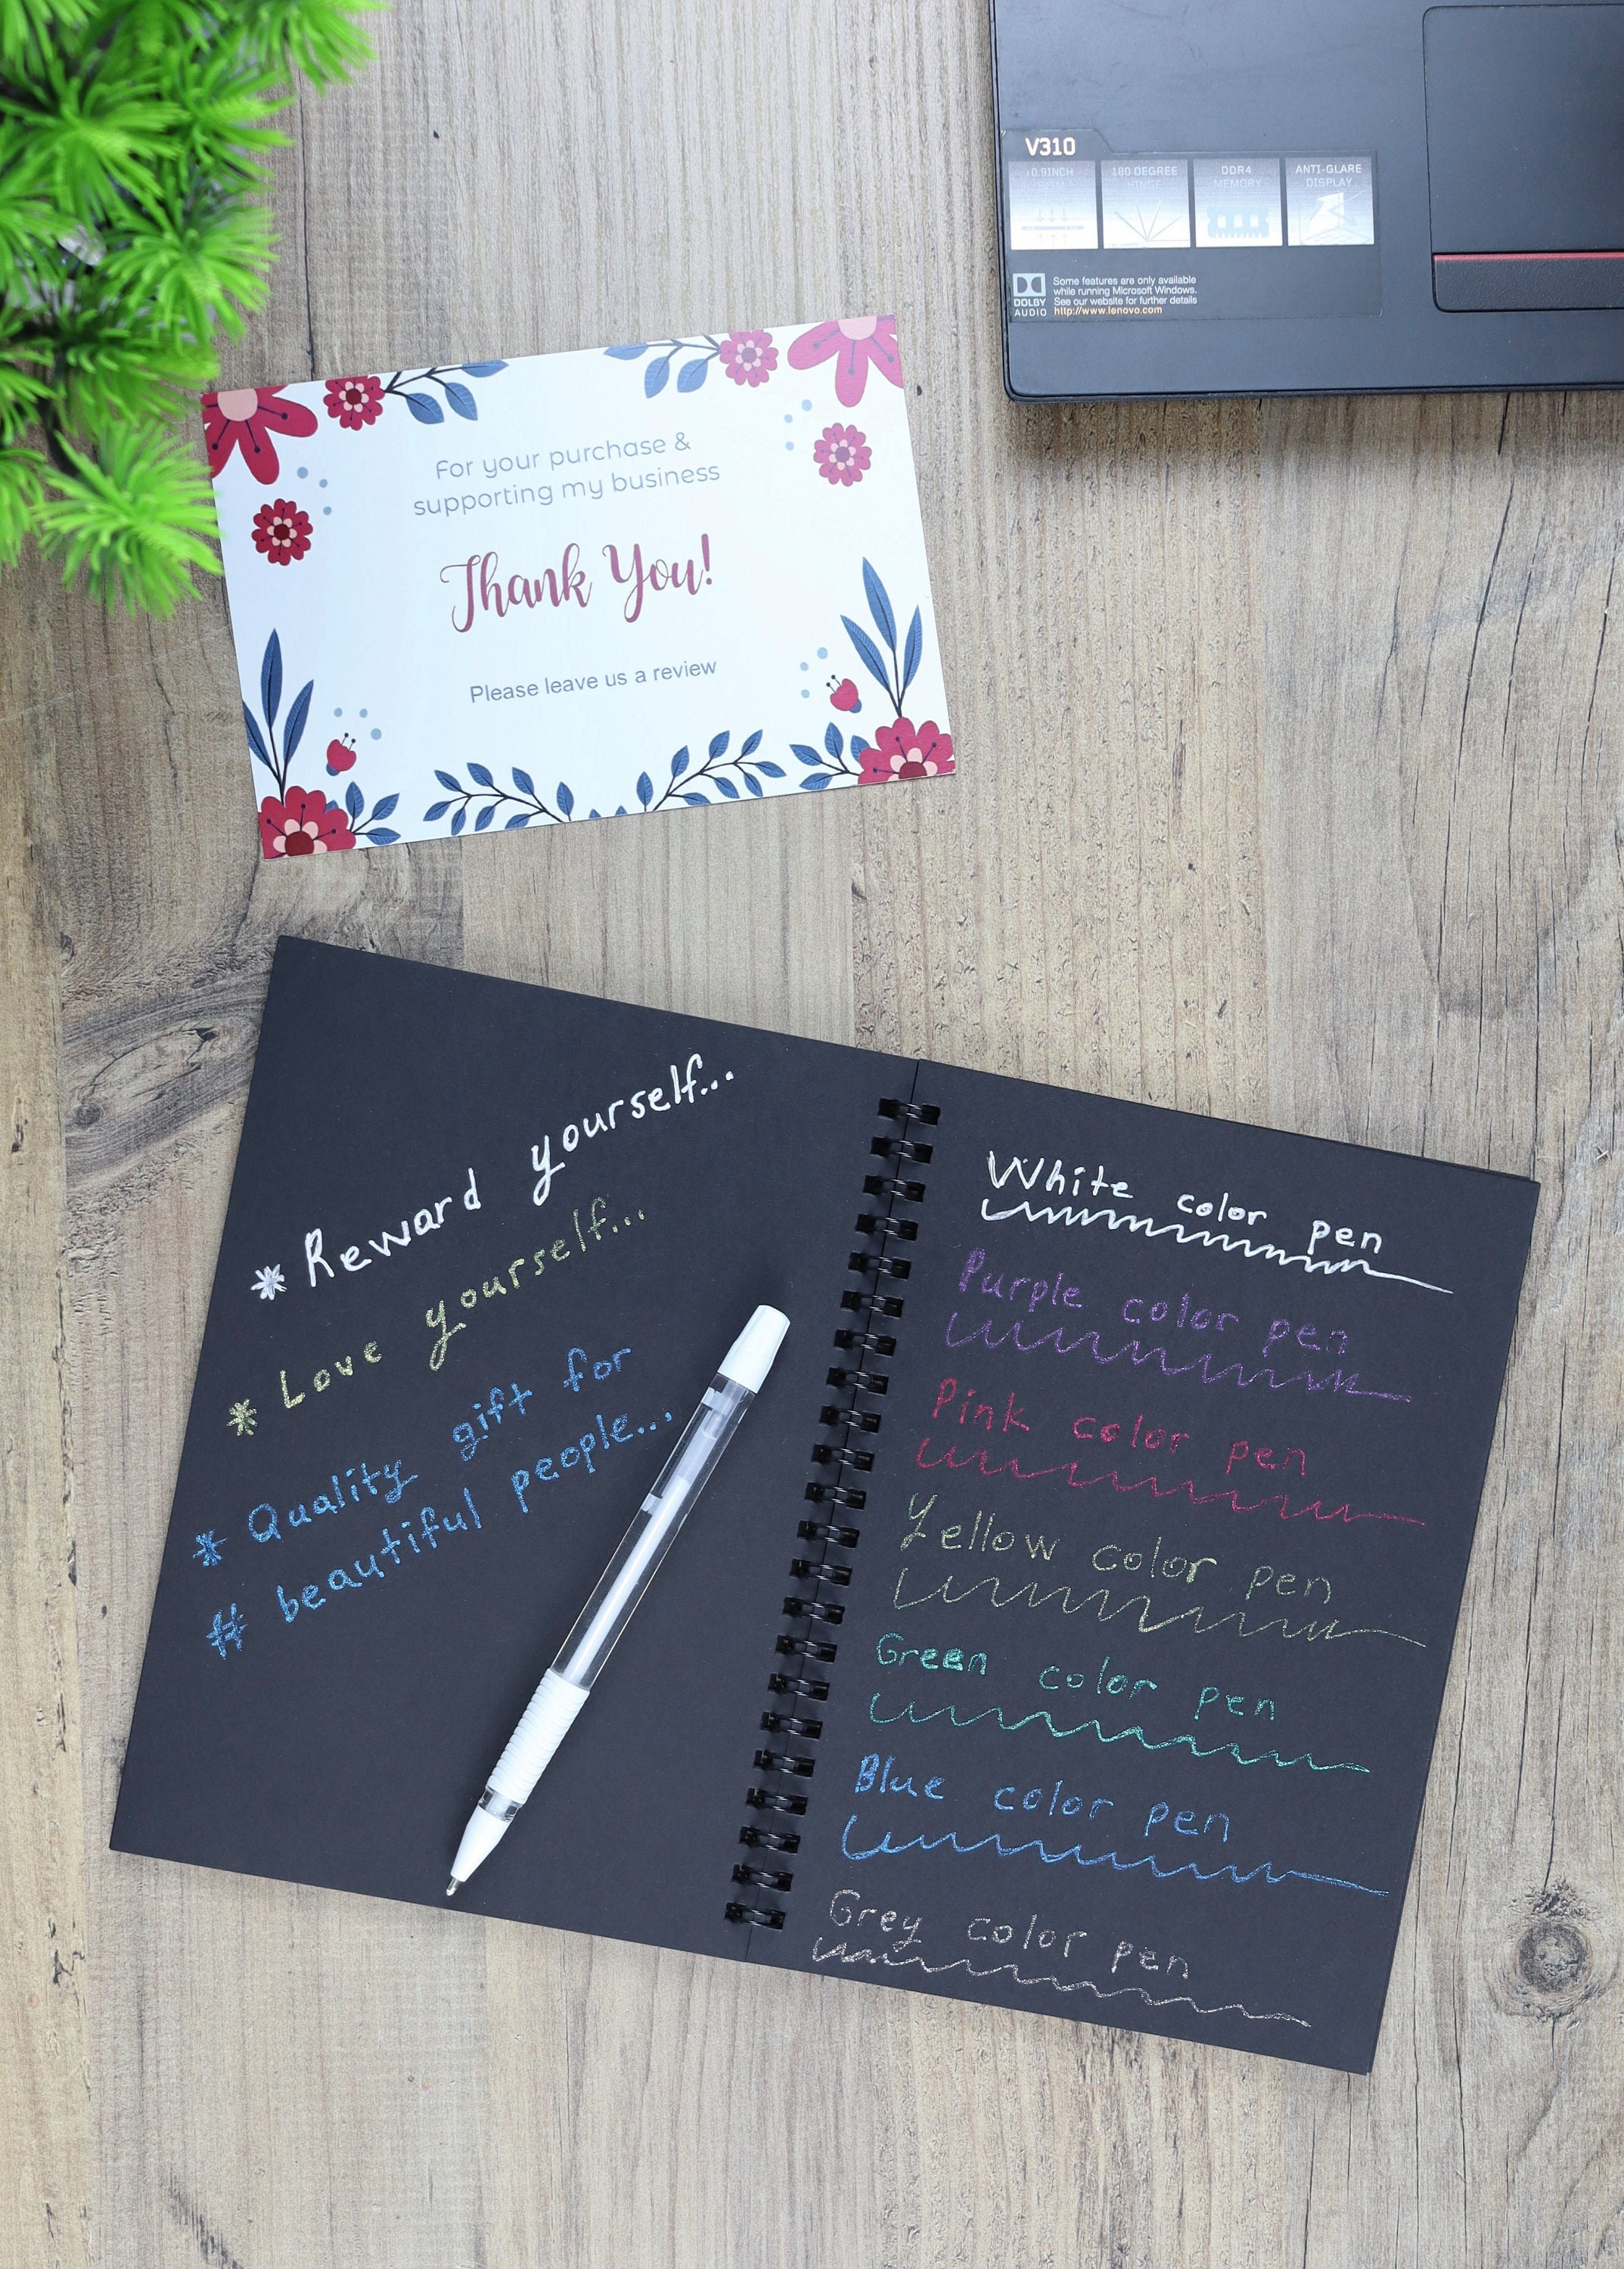 V310
0.9INCH
180 DEGREE
HINGE
DDR4
MEMORY
ANTI-GLARE
DISPLAY
DOLBY
AUDIO
Some features are only available
while running Microsoft Windows.
See our website for further details
http://www.lenovo.com
For your purchase &
supporting my business
Thank You!
Please leave us a review
* Reward yourself...
* Love yourself...
* Quality gift for
# beautiful people...
White color pen
Purple color pen
Pink color pen
Yellow color pen
Green color pen
Blue color pen
Grey color pen